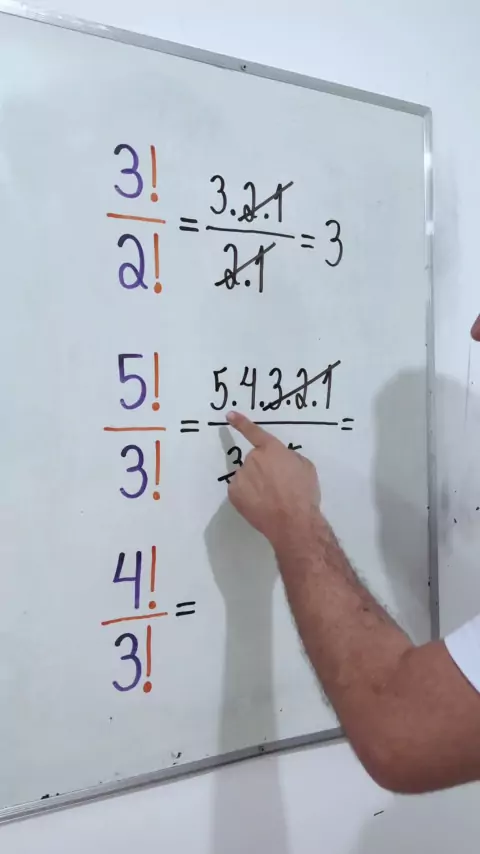 3!/2! = 3.2.1/2.1 = 3
5!/3! = 5.4.3.2.1/3 =
4!/3! =